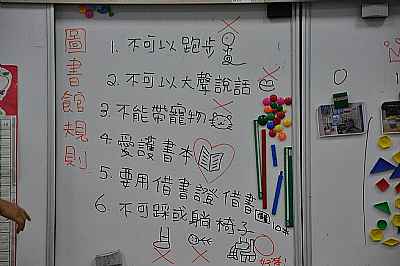 圖書館規則
1. 不可以跑步
2. 不可以大聲說話
3. 不能帶寵物
4. 愛護書本
5. 要用借書證借書
6. 不可踩或躺椅子